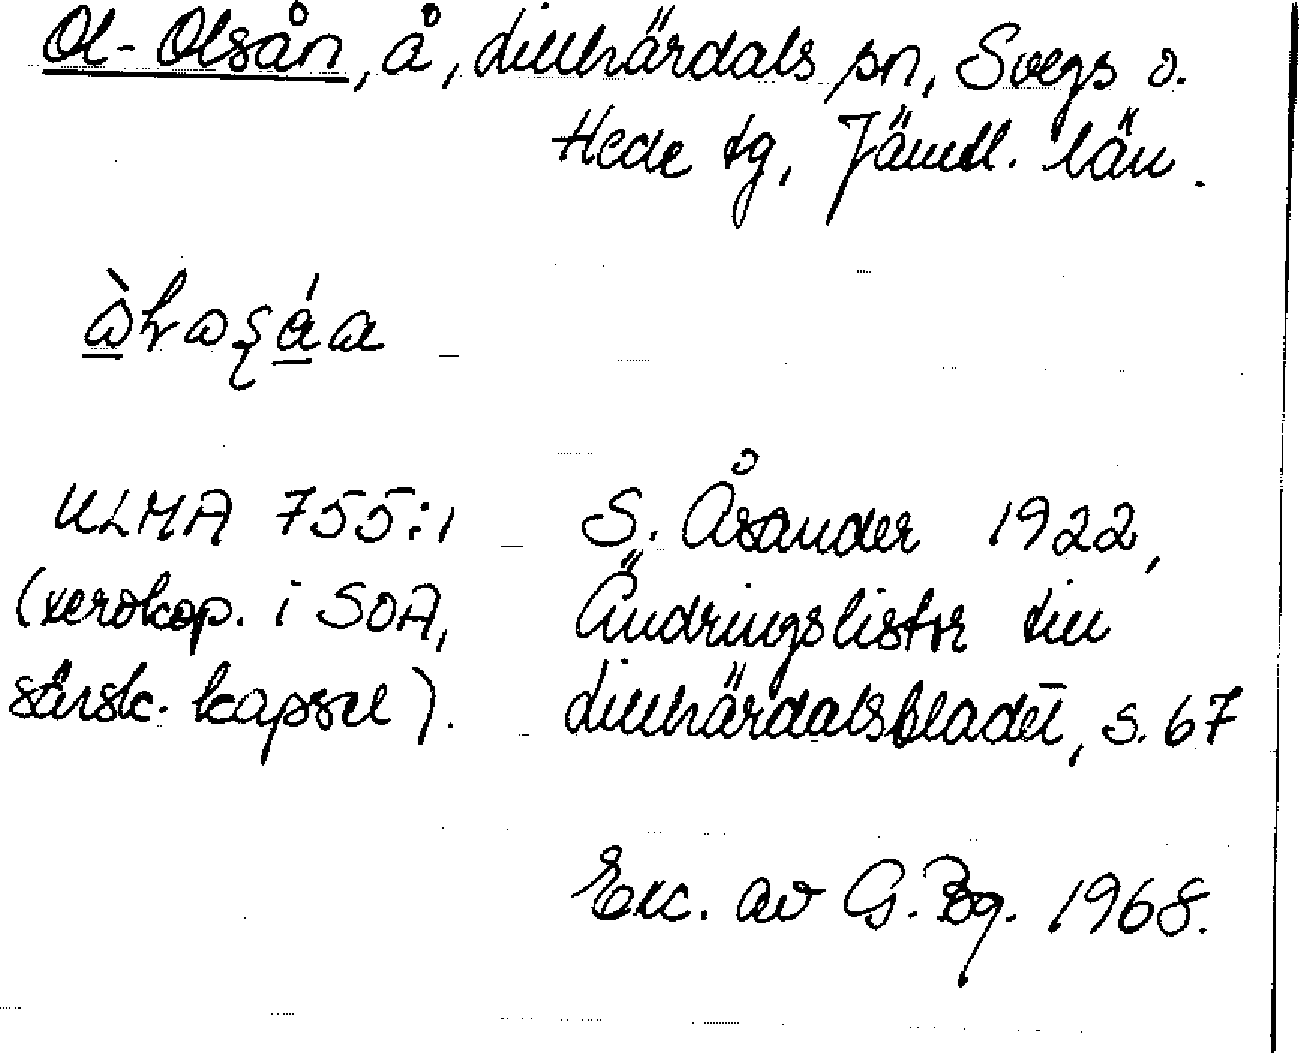 Ol-Olsån, å, Lillhärdals sn, Svegs o.
Hede tg, Jämtl. län.
ULMA 755:1
(xerokop. i SOA,
särsk. kapsel).
S. Åsander 1922,
Ändringslistor till
Lillhärdalsbladet, s. 67
Exc. av G. Bg. 1968.